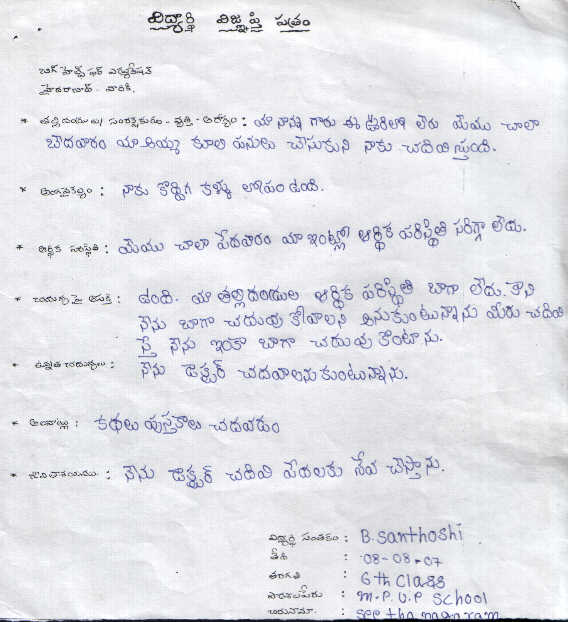 విద్యార్థి విజ్ఞప్తి పత్రం
హైదరాబాద్ వారికి.
* తల్లిదండ్రులు/ సంరక్షకుడు - వృత్తి - ఆదాయం : మా నాన్న గారు ఈ ఊరిలో లేరు మేము చాలా
బేదవారం మా అమ్మ కూలి పనులు చేసుకుని నాకు చదివిస్తుంది.
* అంగవైకల్యం : నాకు కొద్దిగ కళ్ళు లోపం ఉంది.
* ఆర్థిక పరిస్థితి : మేము చాలా పేదవారం మా ఇంట్లో ఆర్థిక పరిస్థితి సరిగ్గా లేదు.
* చదువు పై ఆసక్తి : ఉంది. మా తల్లిదండుల ఆర్థిక పరిస్థితి బాగా లేదు. కాని
నేను బాగా చదువు కోవాలని అనుకుంటున్నాను మీరు చదివి
స్తే నేను ఇంకా బాగా చదువు కొంటాను.
* ఉన్నత చదువులు : నేను డాక్టర్ చదవాలనుకుంటున్నాను.
* అలవాట్లు : కథలు పుస్తకాలు చదవడం
* జీవితాశయము : నేను డాక్టర్ చదివి పేదలకు సేవ చేస్తాను.
విద్యార్థి సంతకం : B.Santhoshi
తేది : 08-08-07
తరగతి : 6th Class
పాఠశాలపేరు : M.P.U.P School
చిరునామా. : Seethanagaram